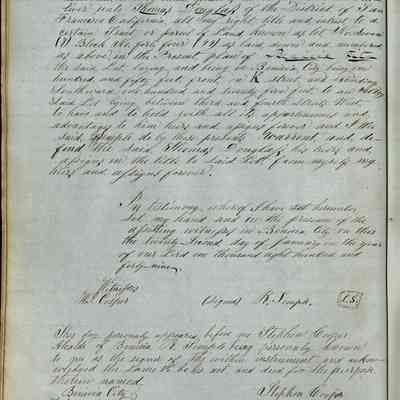 over unto Thomas Douglass of the District of San
Francisco California, all my right title and interest to a
certain Tract or parcel of Land known as lot Nineteen
Block No. forty four (44) as laid down and numbered
as above in the Present plan of
the said Lot lying and being in Benicia City being one
hundred and fifty feet, front, on K street and running
Southward one hundred and twenty five feet to an Alley
said Lot lying between third and fourth streets West,
to have and to hold with all its appurtenances and
advantages to him heirs and assigns forever. and I the
said Semple do by these presents Warrant and de
fend the said Thomas Douglass his heirs and
assigns in the title to said Lot from myself my
heirs and assigns forever.
In testimony whereof I have set hereunto
set my hand and in the presence of the
attesting witness in Benicia City on this
the twenty second day of January in the year
of our Lord one thousand eight hundred and
forty-nine.
Witness
Cooper (Signed) R. Semple. L.S.
This day personally appeared before me Stephen Cooper
Alcalde of Benicia R. Semple being personally known
to me as the signer of the within instrument and acknow
ledged the same to be his act and deed for the purpose
therein named
Benicia City Stephen Cooper